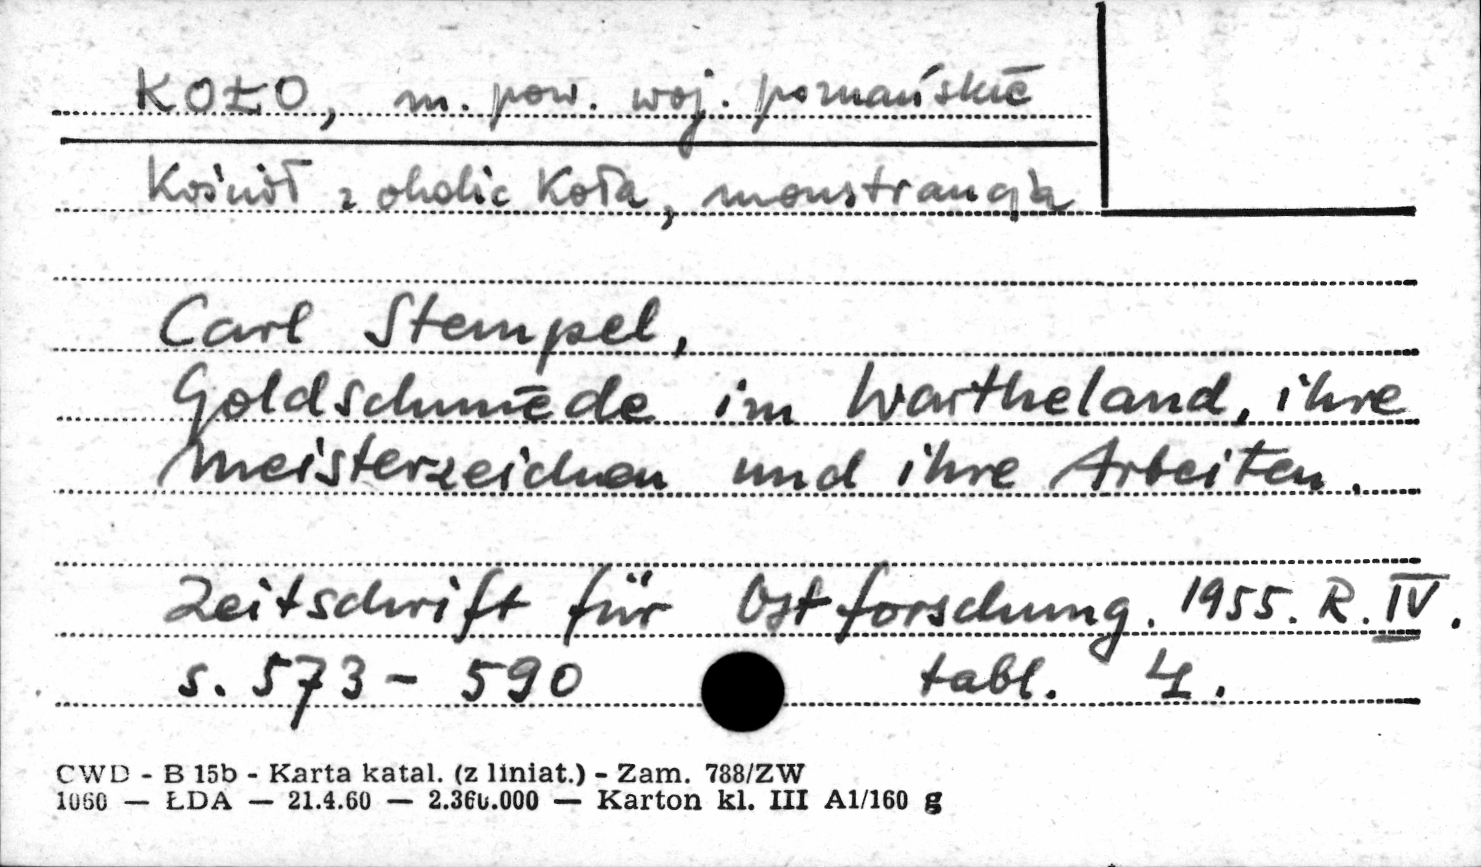 KOŁO, m. pow. woj. poznańskie
Kościół z okolic Koła, monstrancja
Carl Stempel,
Goldschmiede im Wartheland, ihre
Meisterzeichen und ihre Arbeiten.
Zeitschrift für Ostforschung. 1955. R. IV.
s. 573 - 590 tabl. 4.
CWD - B 15b - Karta katal. (z liniat.) - Zam. 788/ZW
1060 — ŁDA — 21.4.60 — 2.360.000 — Karton kl. III A1/160 g